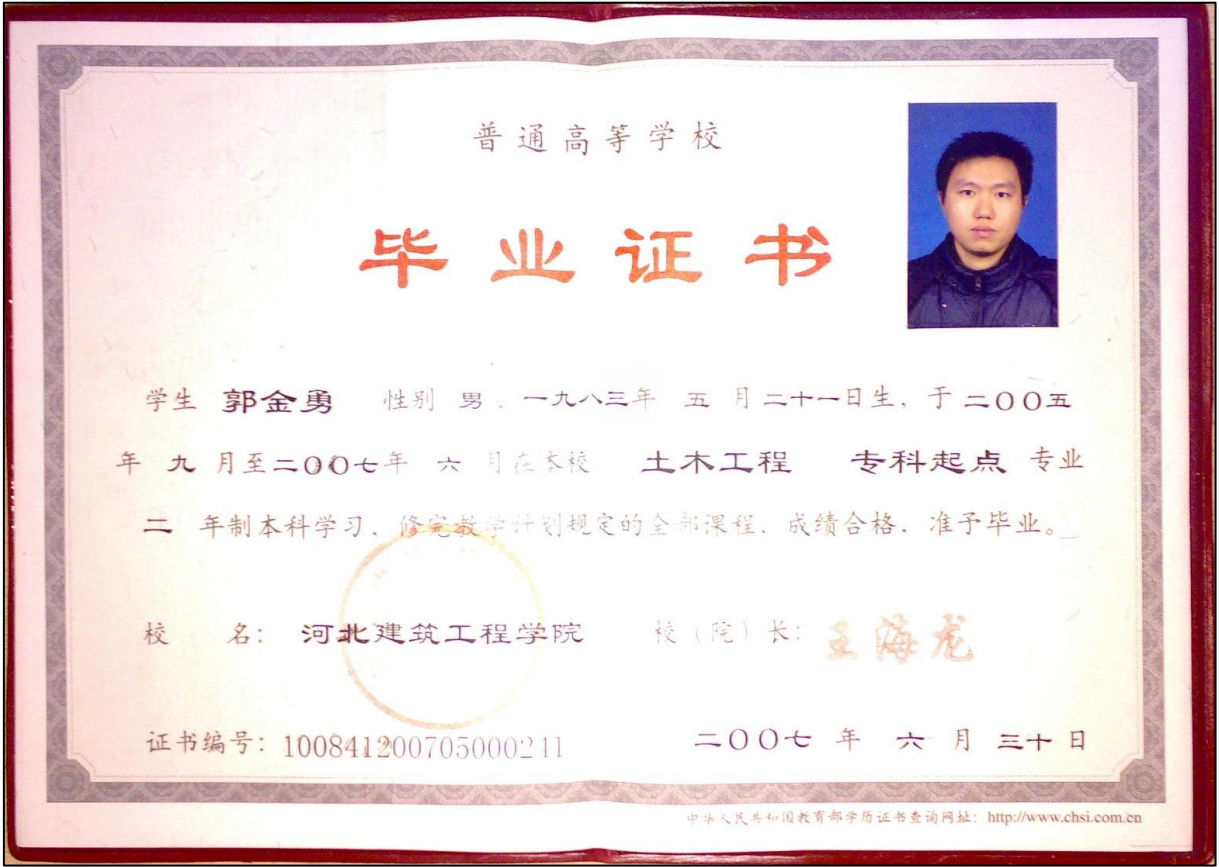 普通高等学校
毕业证书
学生 郭金勇 性别 男、一九八三年 五 月二十一日生、于二〇〇五
年 九 月至二〇〇七年 六 月在本校 土木工程 专科起点 专业
二 年制本科学习、修完教学计划规定的全部课程、成绩合格、准予毕业。
校 名：河北建筑工程学院 校（院）长：王海龙
证书编号：100841200705000211 二〇〇七 年 六 月 三十 日
中华人民共和国教育部学历证书查询网址：http://www.chsi.com.cn